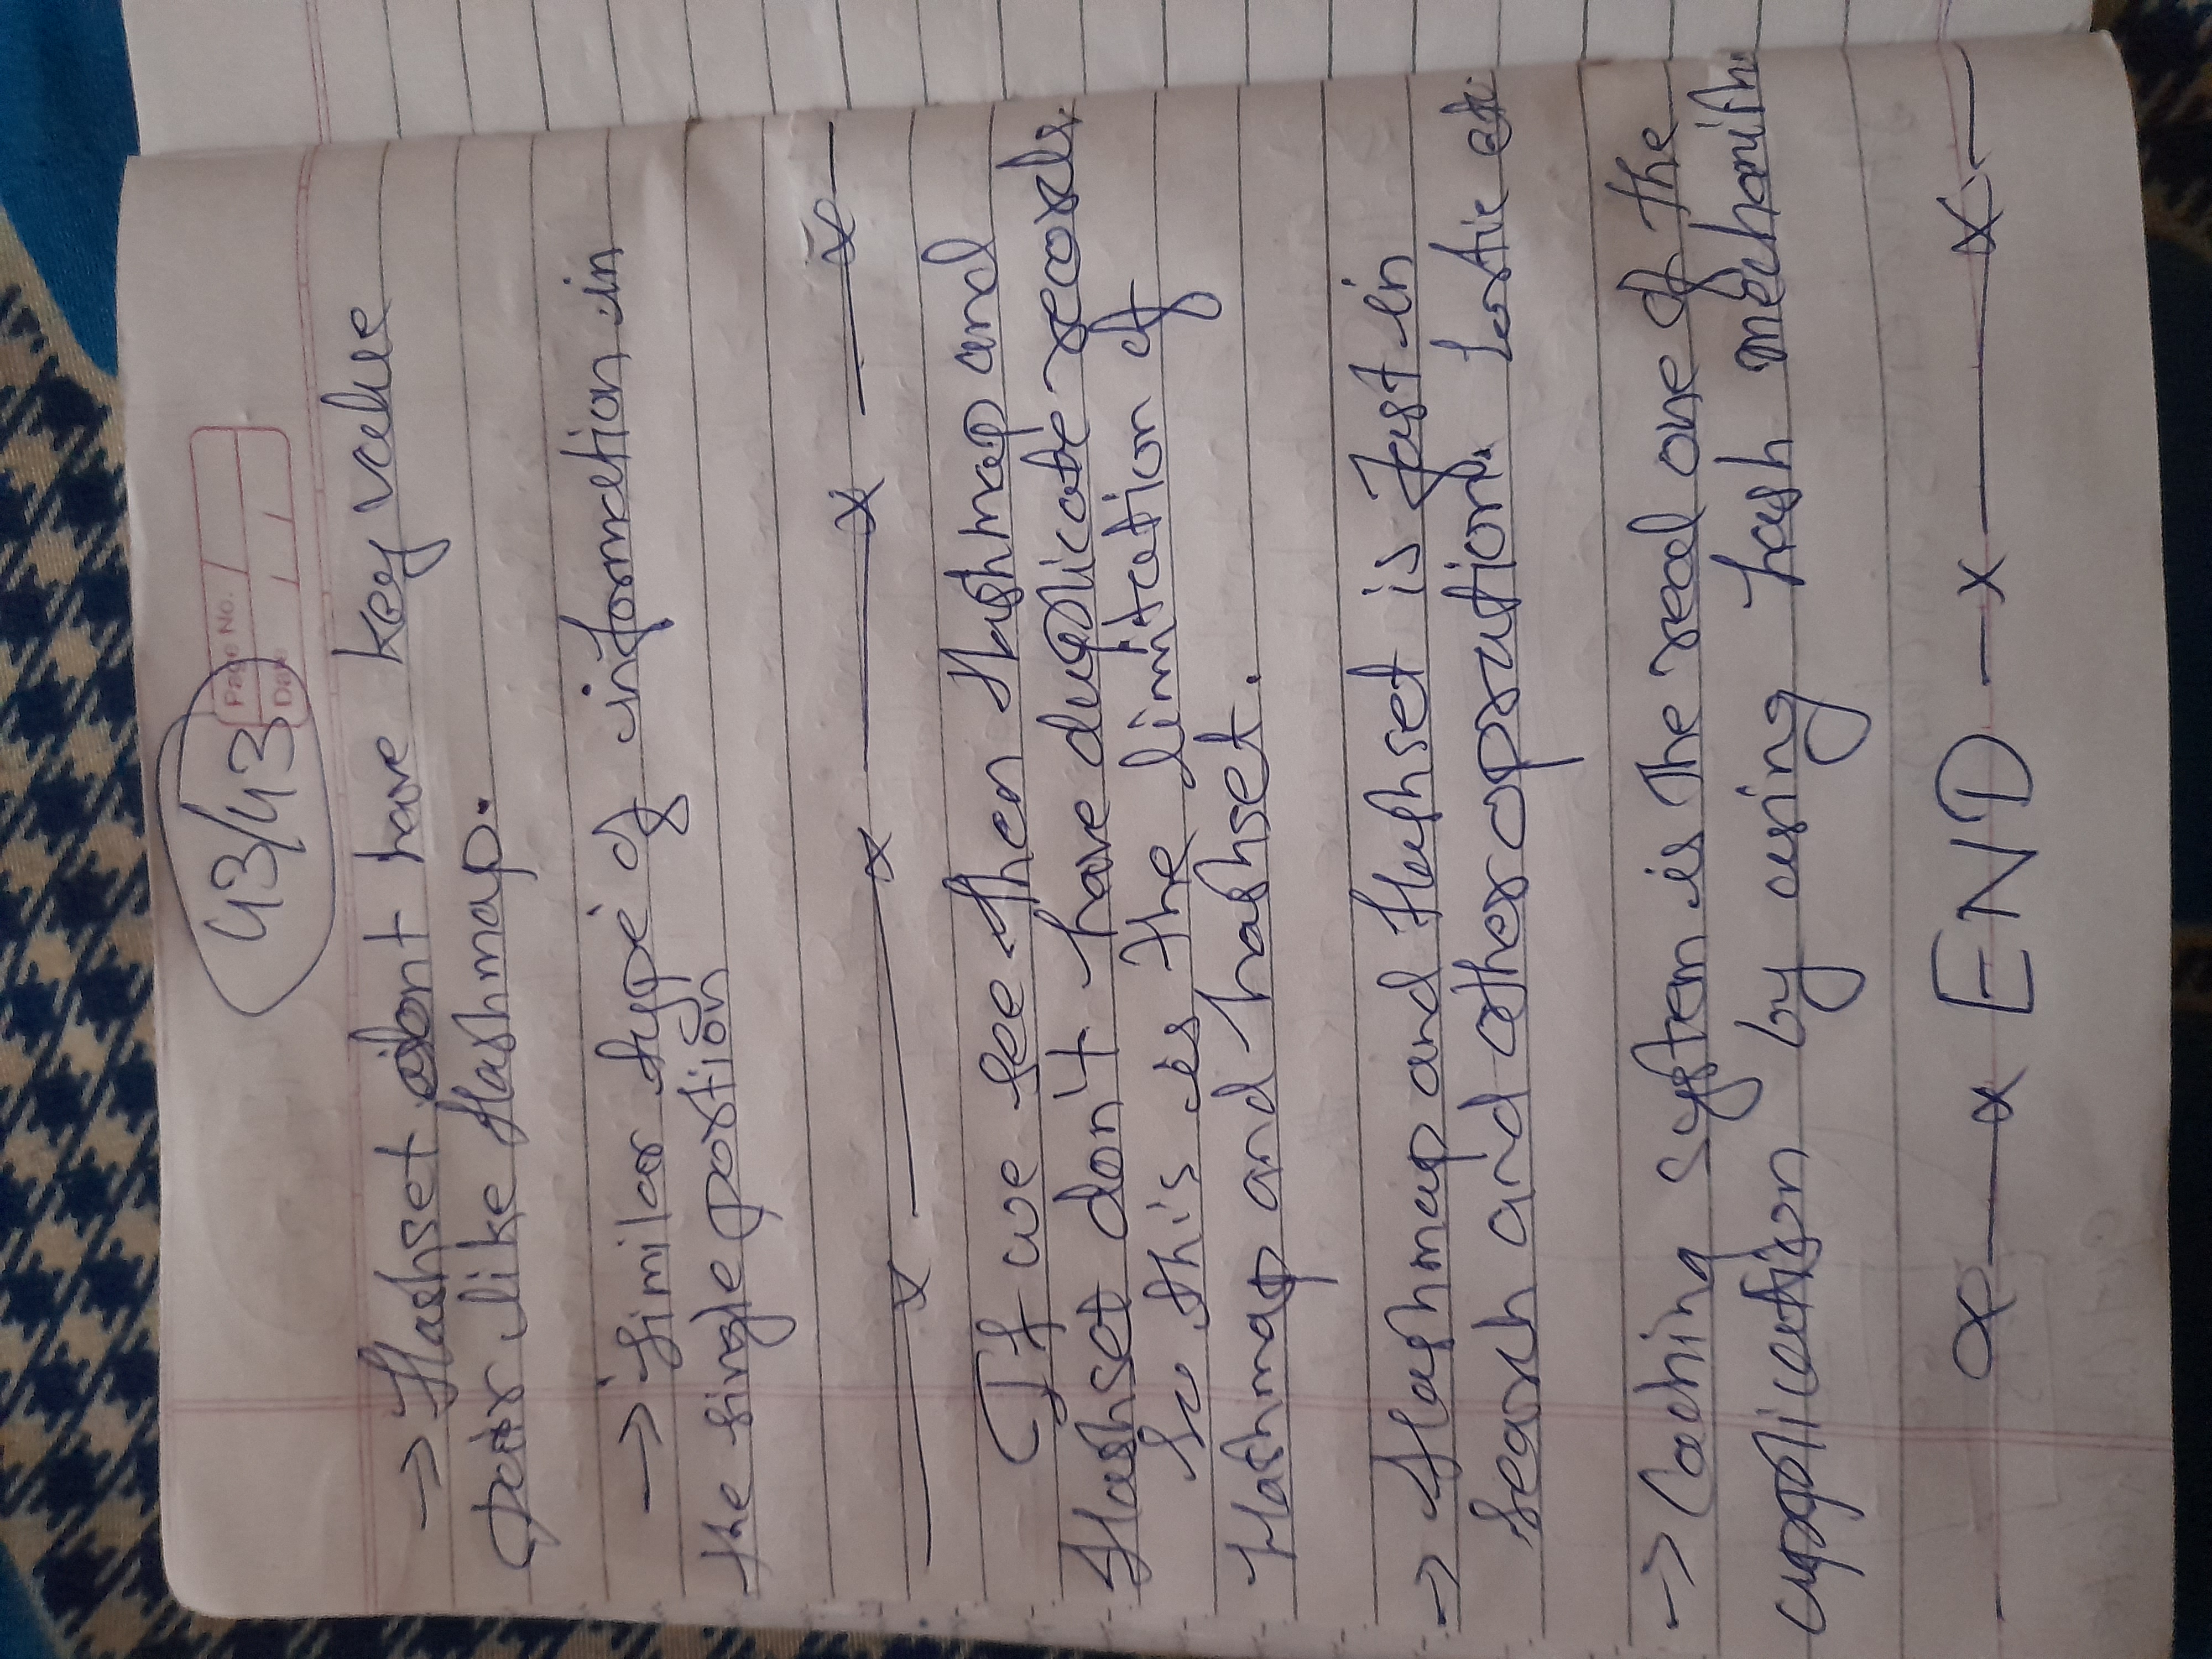 43/43
Page No.
Date
→ Hashset dont have key value
pair like Hashmap.
→ Similar type of information in
the single portion
If we see then Hashmap and
Hashset don't have duplicate records.
So this is the limitation of
Hashmap and hashset.
→ Hashmap and Hashset is fast in
search and other opration.
→ Caching System is the real one of the
application by using hash mechanish
x END x